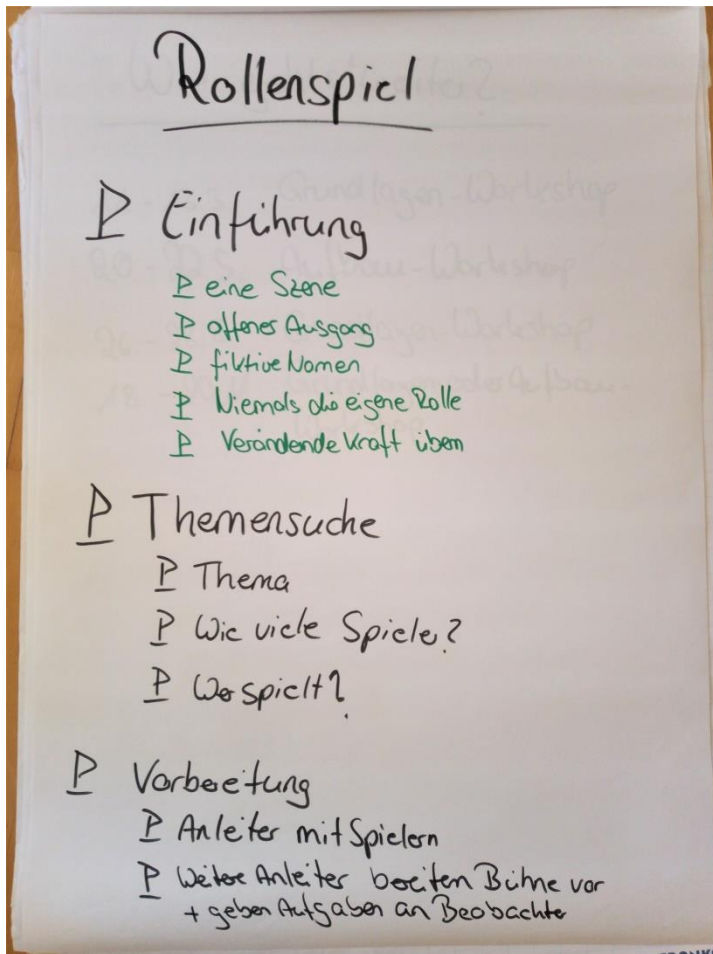 Rollenspiel
Einführung
eine Szene
offener Ausgang
fiktive Namen
Niemals die eigene Rolle
Verändende Kraft üben
Themensuche
Thema
Wie viele Spiele?
Wer spielt?
Vorbereitung
Anleiter mit Spielern
Weitere Anleiter bereiten Bühne vor
+ geben Aufgaben an Beobachter